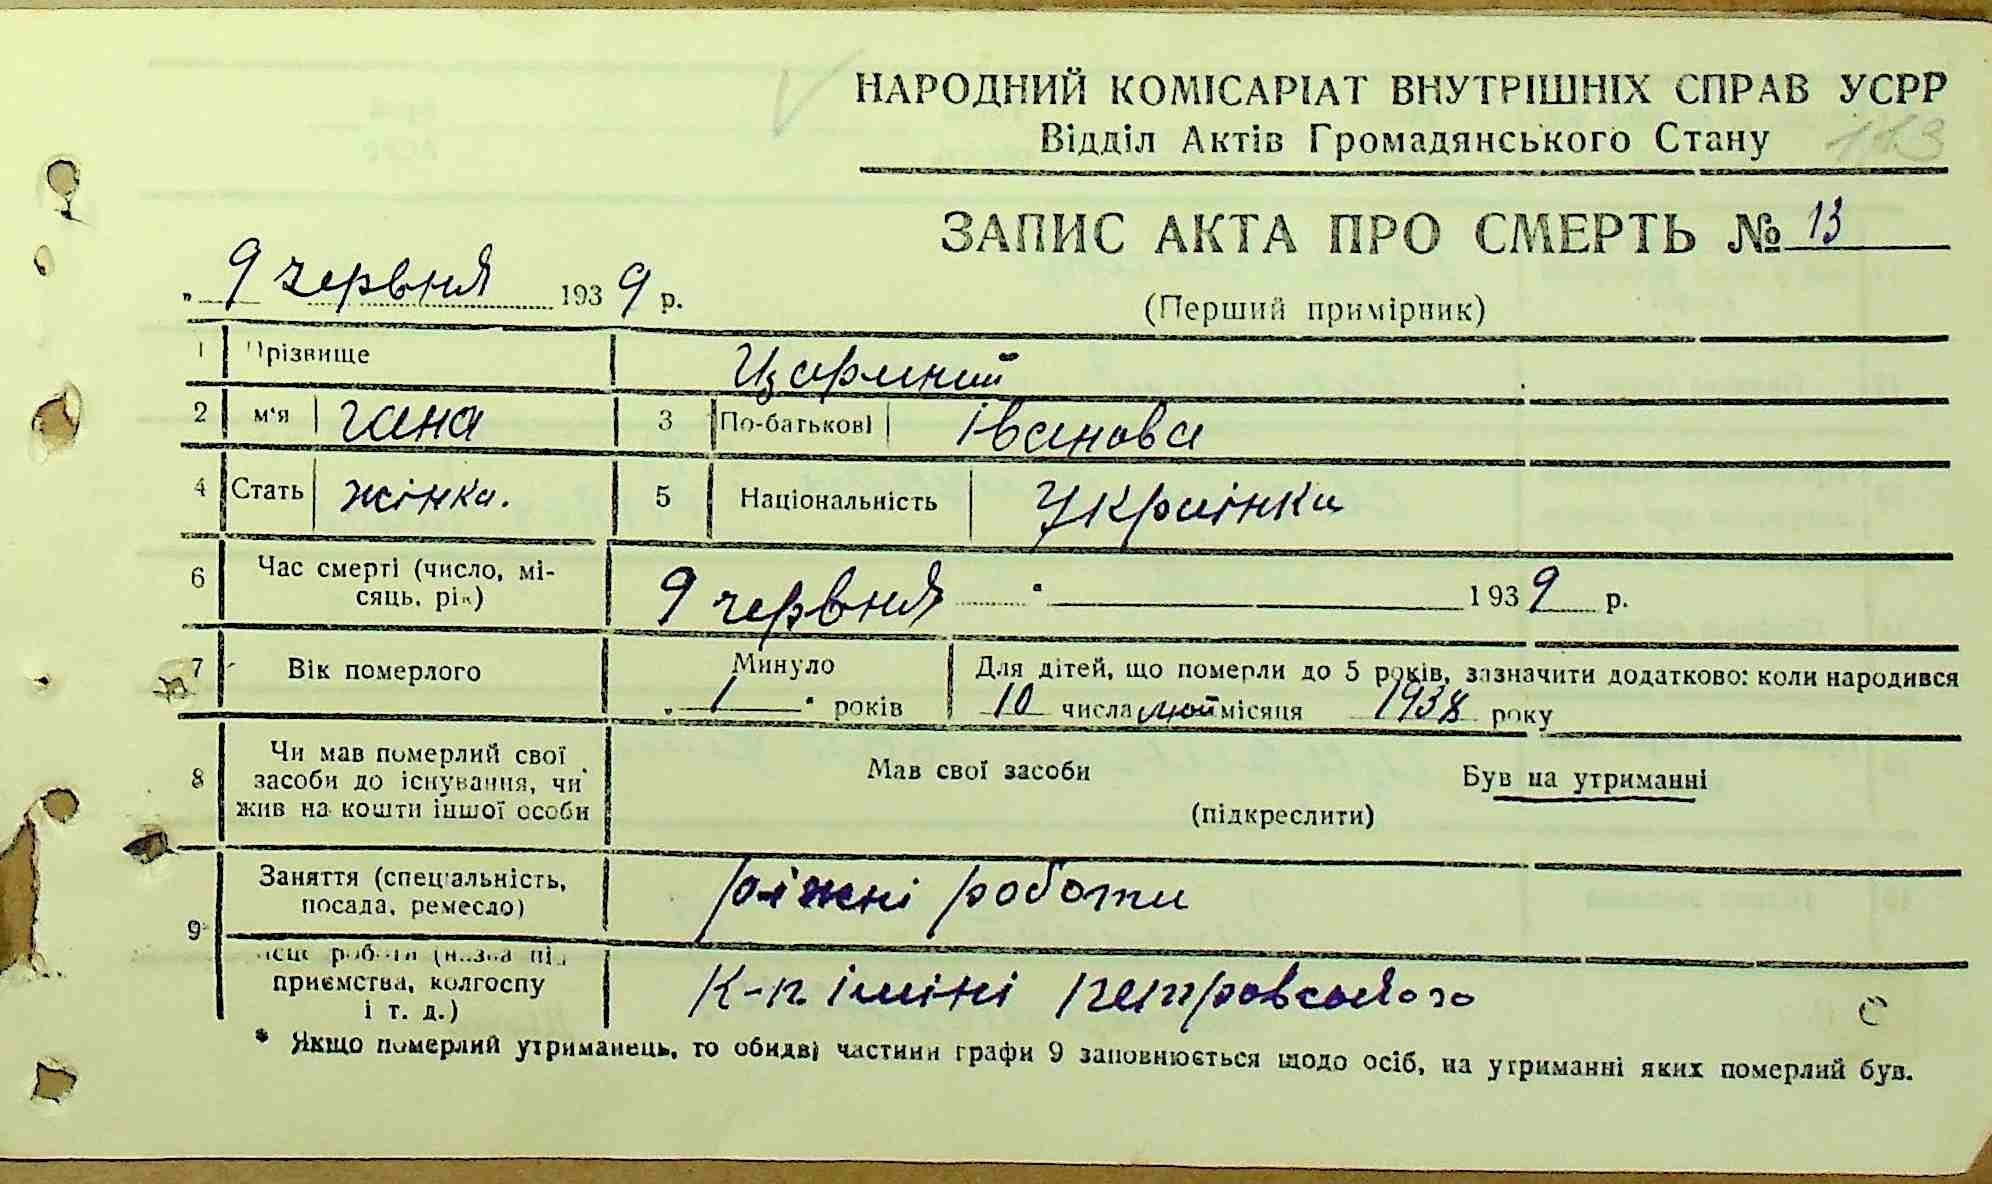 НАРОДНИЙ КОМІСАРІАТ ВНУТРІШНІХ СПРАВ УСРР
Відділ Актів Громадянського Стану 113
ЗАПИС АКТА ПРО СМЕРТЬ № 13
„ 9 червня 1939 р.
(Перший примірник)
1 Прізвище
2 м'я гана 3 По-батькові Іванова
4 Стать жінка. 5 Національність Українка
6 Час смерті (число, мі-
сяць, рік) 9 червня 1939 р.
7 Вік померлого Минуло 1 років Для дітей, що померли до 5 років, зазначити додатково: коли народився
10 числа май місяця 1938 року
8 Чи мав померлий свої
засоби до існування, чи
жив на кошти іншої особи Мав свої засоби Був на утриманні
(підкреслити)
9 Заняття (спеціальність,
посада, ремесло) ріжні роботи
приємства, колгоспу
і т. д.) К-п іміні петровського
* Якщо померлий утриманець, то обидві частини графи 9 заповнюється щодо осіб, на утриманні яких померлий був.